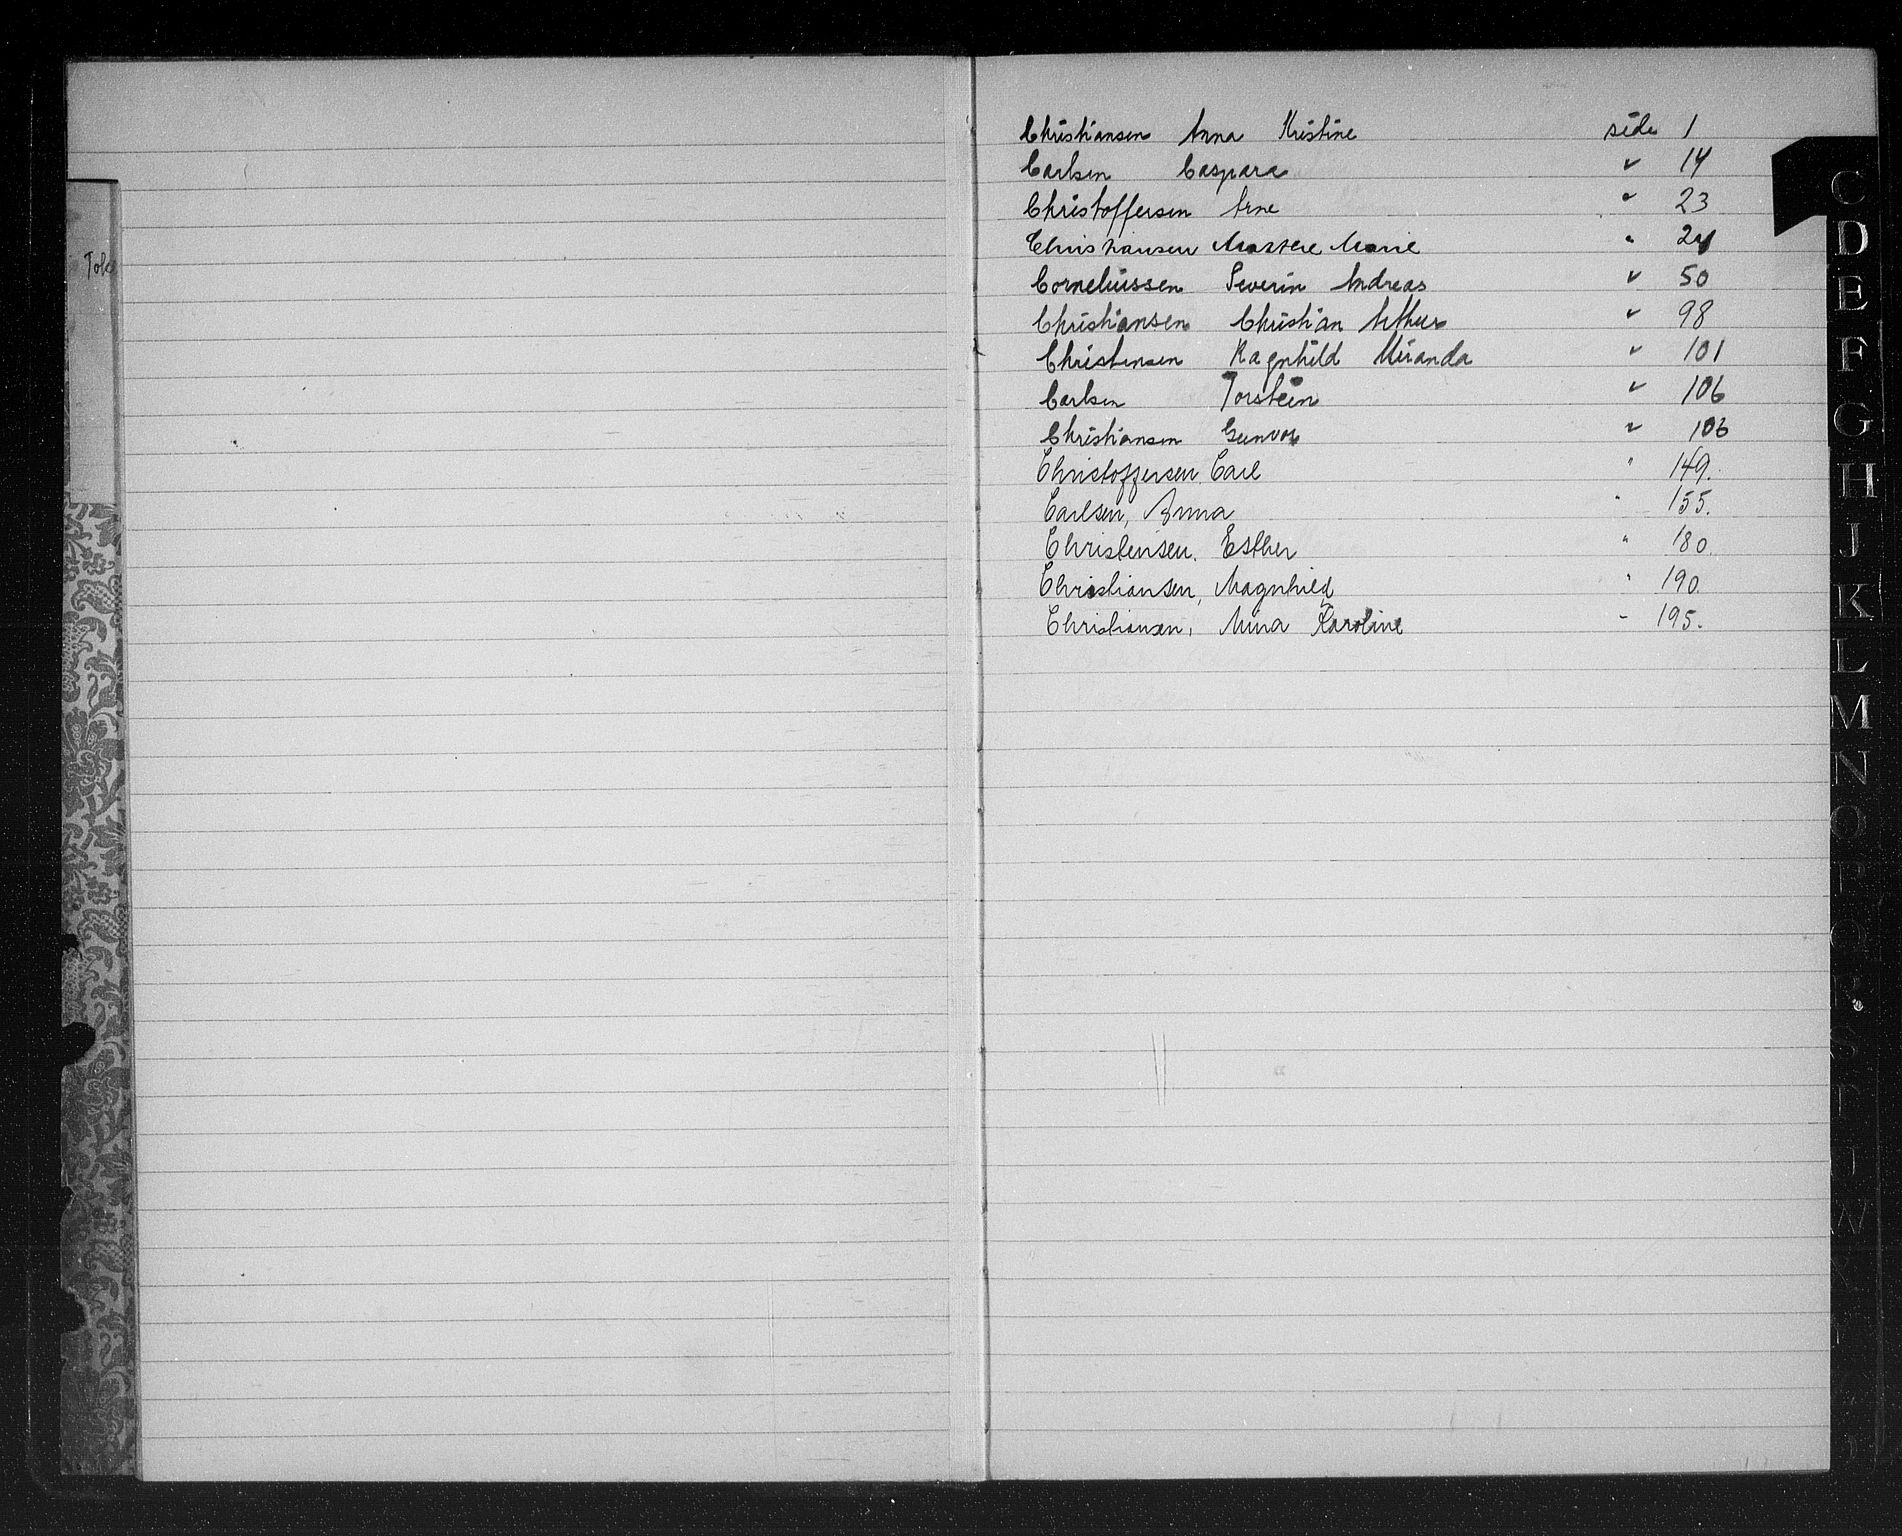 Christiansen Anna Kristine side 1
Carlsen Caspara " 14
Christoffersen Arne " 23
Christiansen Marie " 24
Corneliussen Severin Andreas " 50
Christiansen Christian Arthur " 98
Christensen Ragnhild Miranda " 101
Carlsen Torstein " 106
Christiansen Gunvor " 106
Christoffersen, Carl " 149.
Carlsen, Anna " 155.
Christensen, Esther " 180.
Christiansen, Magnhild " 190.
Christiansen, Mina Karoline - 195.
C
D
E
F
G
H
J
K
L
M
N
O
P
Q
R
S
T
U
W